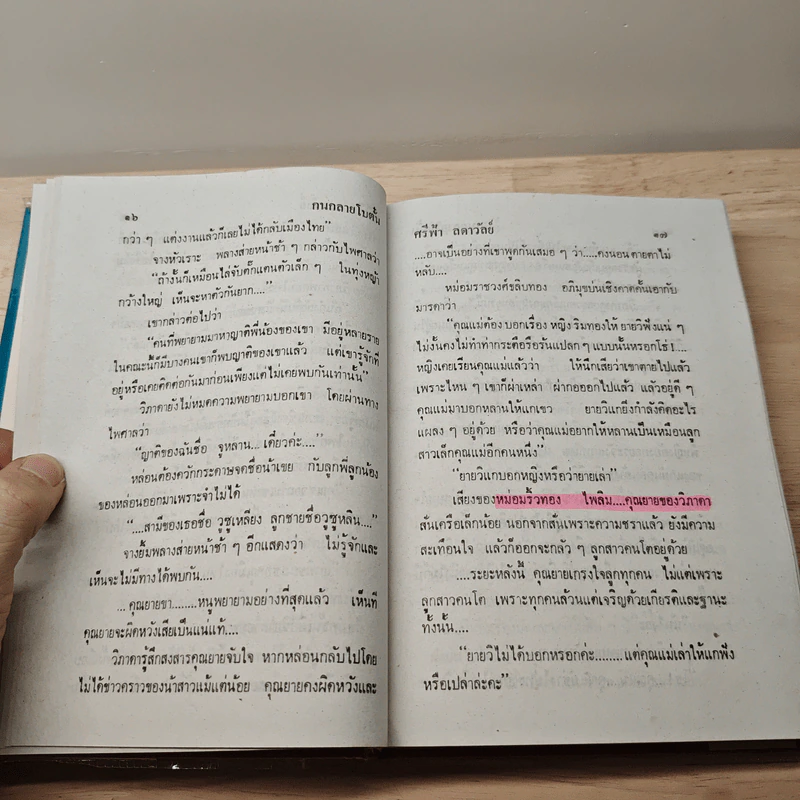 ๑๖
กนกลายโบตั๋น
กว่า ๆ แต่งงานแล้วก็เลยไม่ได้กลับเมืองไทย”
จางหัวเราะ พลางส่ายหน้าช้า ๆ กล่าวกับไพศาลว่า
“ถ้างั้นก็เหมือนไล่จับตั๊กแตนตัวเล็ก ๆ ในทุ่งหญ้า
กว้างใหญ่ เห็นจะหาตัวกันยาก....”
เขากล่าวต่อไปว่า
“คนที่พยายามมาหาญาติพี่น้องของเขา มีอยู่หลายราย
ในคณะนี้ก็มีบางคนเขาก็พบญาติของเขาแล้ว แต่เขารู้จักที่
อยู่หรือเคยติดต่อกันมาก่อนเพียงแต่ไม่เคยพบกันเท่านั้น”
วิภาดายังไม่หมดความพยายามบอกเขา โดยผ่านทาง
ไพศาลว่า
“ญาติของฉันชื่อ จูหลาน... เดี๋ยวค่ะ....”
หล่อนต้องควักกระดาษจดชื่อน้าเขย กับลูกพี่ลูกน้อง
ของหล่อนออกมาเพราะจำไม่ได้
“....สามีของเธอชื่อ วูซูเหลียง ลูกชายชื่อวูซูหลิน....”
จางยิ้มพลางส่ายหน้าช้า ๆ อีกแสดงว่า ไม่รู้จักและ
เห็นจะไม่มีทางได้พบกัน....
... คุณยายขา........หนูพยายามอย่างที่สุดแล้ว เห็นที
คุณยายจะผิดหวังเสียเป็นแน่แท้....
วิภาดารู้สึกสงสารคุณยายจับใจ หากหล่อนกลับไปโดย
ไม่ได้ข่าวคราวของน้าสาวแม้แต่น้อย คุณยายคงผิดหวังและ
ศรีฟ้า ลดาวัลย์
๑๗
....อาจเป็นอย่างที่เขาพูดกันเสมอ ๆ ว่า.....คงนอนตายตาไม่
หลับ....
หม่อมราชวงศ์ขลิบทอง อภิมุขบ่นเชิงคาดคั้นเอากับ
มารดาว่า
“คุณแม่ต้องบอกเรื่อง หญิง ริมทองให้ ยายวิฟังแน่ ๆ
ไม่งั้นคงไม่ทำท่ากระตือรือร้นแปลก ๆ แบบนั้นหรอกโธ่ !....
หญิงเคยเรียนคุณแม่แล้วว่า ให้นึกเสียว่าเขาตายไปแล้ว
เพราะไหน ๆ เขาก็ผ่าเหล่า ผ่ากอออกไปแล้ว แล้วอยู่ดี ๆ
คุณแม่มาบอกหลานให้แกเขว ยายวิแกยิ่งกำลังคิดอะไร
แผลง ๆ อยู่ด้วย หรือว่าคุณแม่อยากให้หลานเป็นเหมือนลูก
สาวเล็กคุณแม่อีกคนหนึ่ง”
“ยายวิแกบอกหญิงหรือว่ายายเล่า”
เสียงของหม่อมริ้วทอง ไพลิน....คุณยายของวิภาดา
สั่นเครือเล็กน้อย นอกจากสั่นเพราะความชราแล้ว ยังมีความ
สะเทือนใจ แล้วก็ออกจะกลัว ๆ ลูกสาวคนโตอยู่ด้วย
....ระยะหลังนี้ คุณยายเกรงใจลูกทุกคน ไม่แต่เพราะ
ลูกสาวคนโต เพราะทุกคนล้วนแต่เจริญด้วยเกียรติและฐานะ
ทั้งนั้น....
“ยายวิไม่ได้บอกหรอกค่ะ........แต่คุณแม่เล่าให้แกฟัง
หรือเปล่าล่ะคะ”